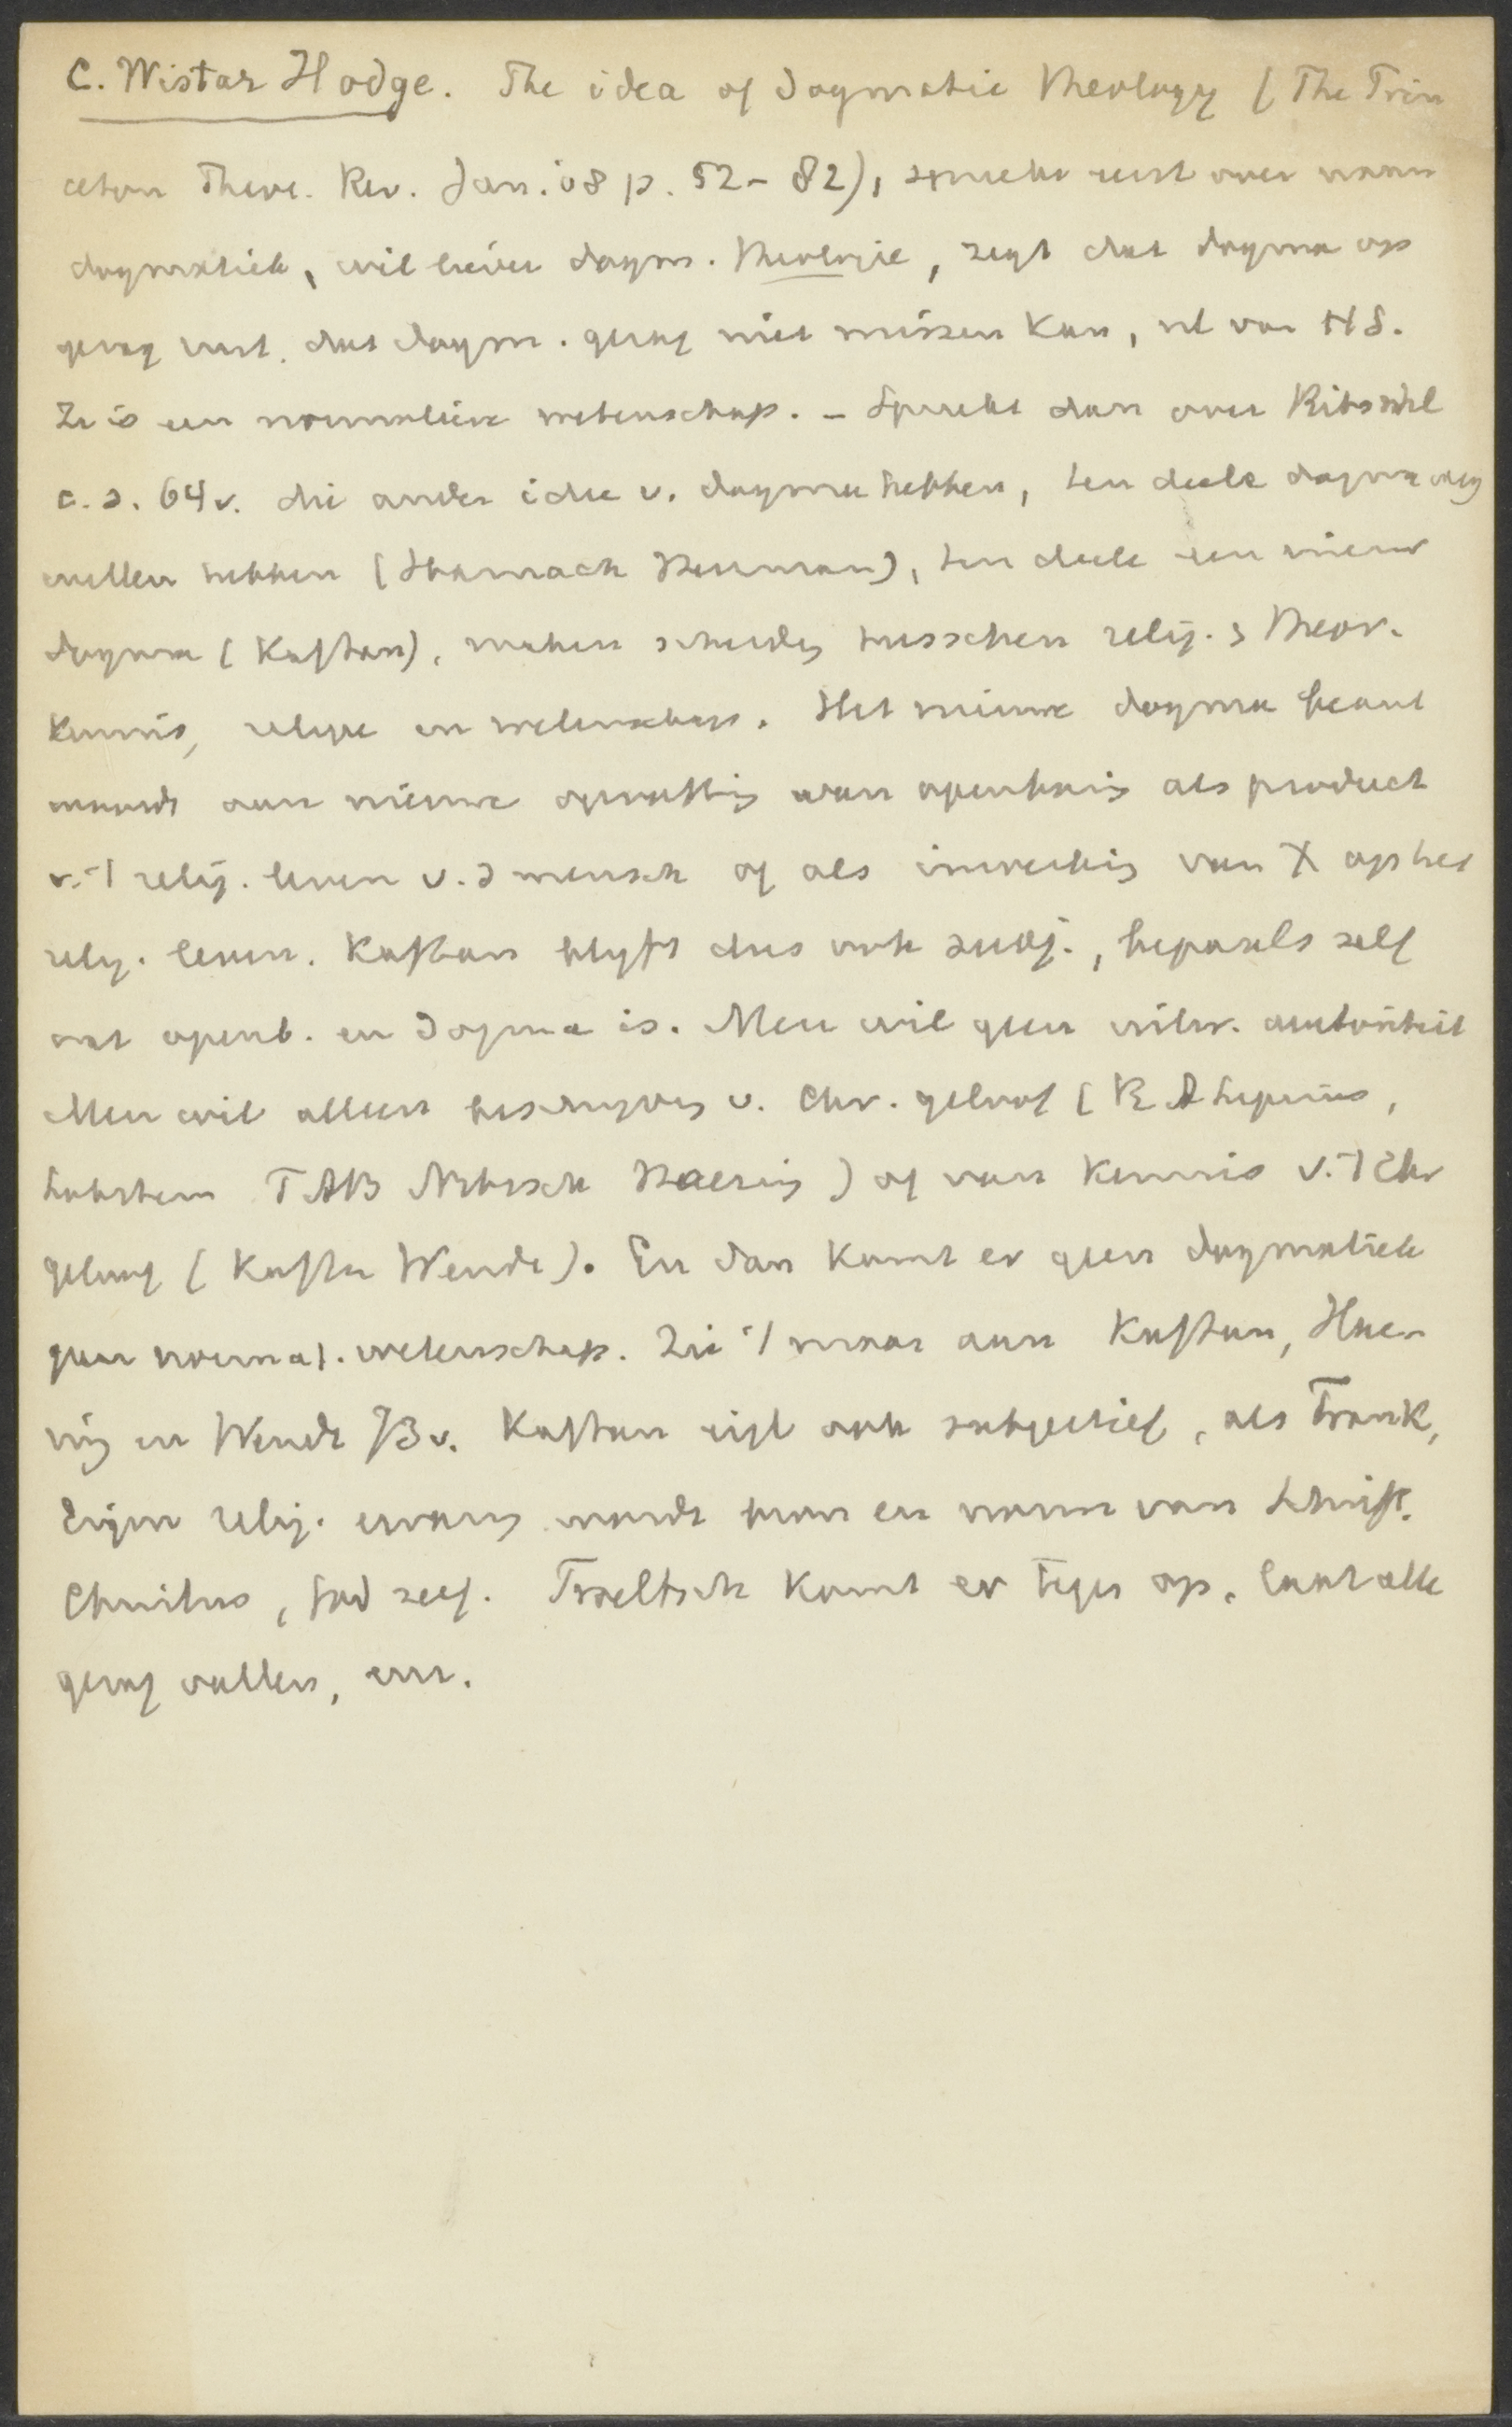 C. Wistar Hodge. The idea of dogmatic theology (The Prin
ceton Theol. Rev. Jan. 08 p. 52-82), spreekt eerst over naam
dogmatiek, wil liever dogm. theologie, zegt dat dogma op
gezag rust. dat dogm. gezag niet missen kan, nl van HS.
Ze is een normatieve wetenschap. - Spreekt dan over Ritschl
c.s. 64v. die ander idee v. dogma hebben, ten deele dogma weg
willen hebben (Harnack), ten deele een nieuw
dogma (Kaftan), maken scheidg tusschen relig. & theor.
kennis, religie en wetenschap. Het nieuwe dogma beant
woordt aan nieuwe opvattig van openbarig als product
v. 't relig. leven v. d mensch of als inwerkig van X op het
relig. leven. Kaftan blyft dus ook subj., bepaalt zelf
wat openb. en dogma is. Men wil geen uitw. autoriteit
Men wil alleen beschryvig v. Chr. geloof (R A Lipsius,
Lobstein FAB Nitzsch Haering) of van kennis v. 't Chr
geloof (Kaftan Wendt). En dan komt er geen dogmatiek
geen normat. wetenschap. Zie 't maar aan Kaftan, Hae-
rig en Wendt 73v. Kaftan eigl ook subjectief, als Frank,
Eigen relig. ervarg wordt bron en norm van Schrift.
Christus, God zelf. Troeltsch komt er tegen op, laat alle
gezag vallen, enz.